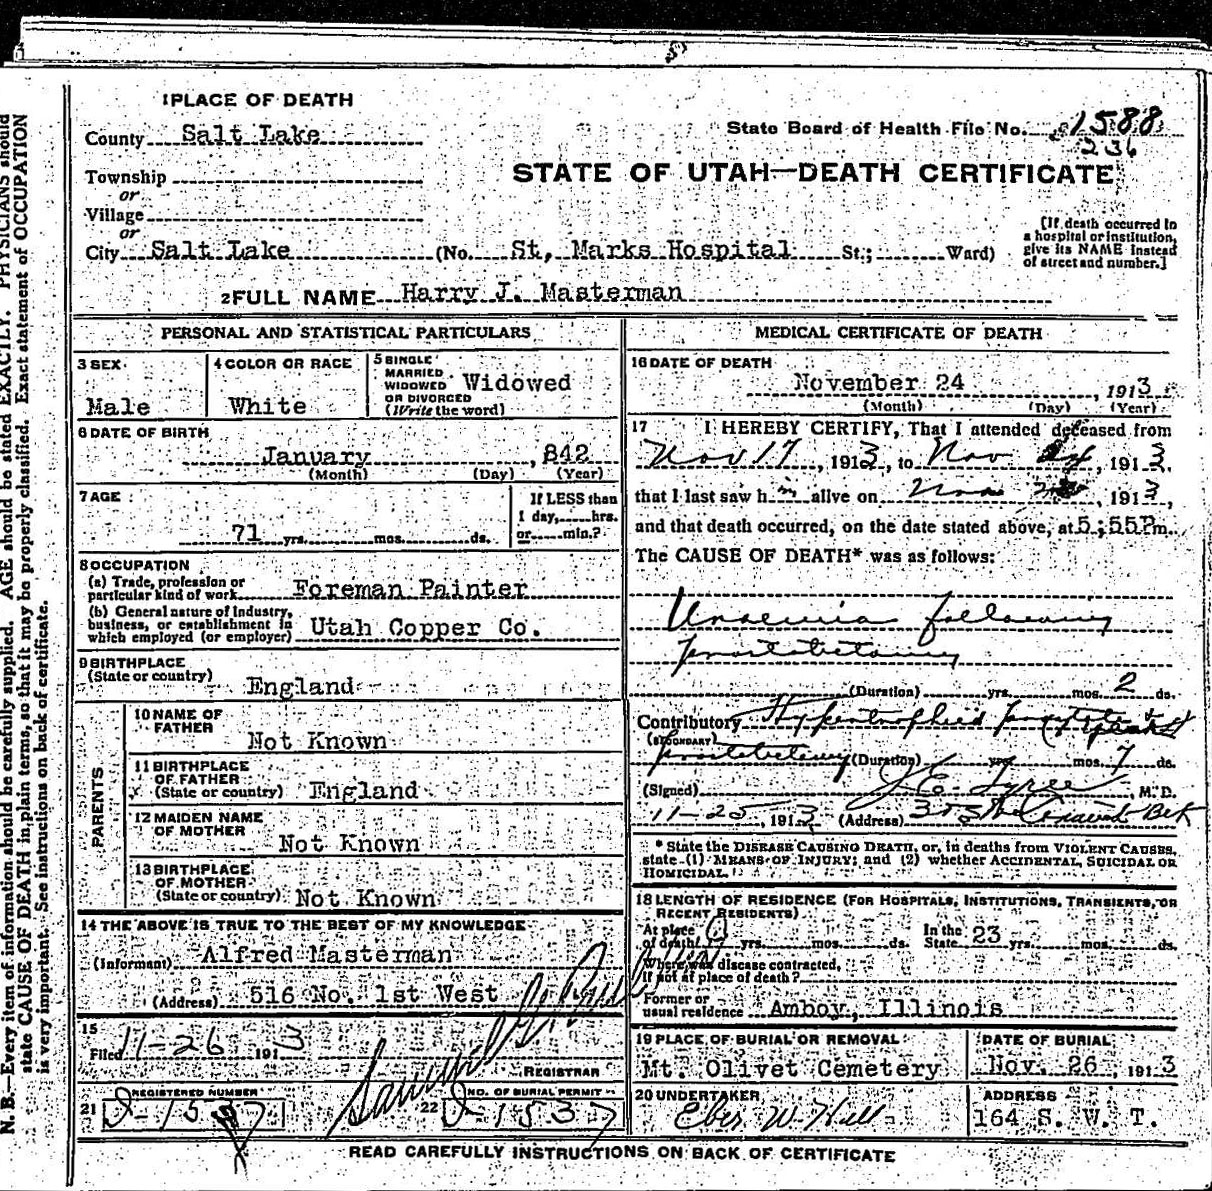 1 PLACE OF DEATH
County Salt Lake
State Board of Health File No. 1588
236
Township
or
Village
or
STATE OF UTAH—DEATH CERTIFICATE
City Salt Lake (No. St, Marks Hospital St.; Ward)
[If death occurred in
a hospital or institution,
give its NAME instead
of street and number.]
2 FULL NAME Harry J. Masterman
PERSONAL AND STATISTICAL PARTICULARS
3 SEX
Male
4 COLOR OR RACE
White
5 SINGLE
MARRIED
WIDOWED
OR DIVORCED
(Write the word)
Widowed
6 DATE OF BIRTH
January , 842
(Month) (Day) (Year)
7 AGE
71 yrs. mos. ds.
If LESS than
1 day, hrs.
or min.?
8 OCCUPATION
(a) Trade, profession or
particular kind of work Foreman Painter
(b) General nature of industry,
business, or establishment in
which employed (or employer) Utah Copper Co.
9 BIRTHPLACE
(State or country)
England
PARENTS
10 NAME OF
FATHER
Not Known
11 BIRTHPLACE
OF FATHER
(State or country) England
12 MAIDEN NAME
OF MOTHER
Not Known
13 BIRTHPLACE
OF MOTHER
(State or country) Not Known
14 THE ABOVE IS TRUE TO THE BEST OF MY KNOWLEDGE
(Informant) Alfred Masterman
(Address) 516 No. 1st West
15
Filed 11-26 1913
Samuel G.
REGISTRAR
21 REGISTERED NUMBER
22 NO. OF BURIAL PERMIT
1537
MEDICAL CERTIFICATE OF DEATH
16 DATE OF DEATH
November 24 , 1913
(Month) (Day) (Year)
17 I HEREBY CERTIFY, That I attended deceased from
Nov 17 , 1913, to Nov , 1913,
that I last saw h m alive on Nov , 1913,
and that death occurred, on the date stated above, at 5;55P m.
The CAUSE OF DEATH* was as follows:
Uraemia following
prostatectomy
(Duration) yrs. mos. 2 ds.
Contributory Hypertrophied prostate &
(SECONDARY)
prostatectomy (Duration) yrs. mos. 7 ds.
(Signed) J. E. Tyree , M. D.
11-25, 1913 (Address)
* State the DISEASE CAUSING DEATH, or, in deaths from VIOLENT CAUSES,
state (1) MEANS OF INJURY; and (2) whether ACCIDENTAL, SUICIDAL OR
HOMICIDAL.
18 LENGTH OF RESIDENCE (FOR HOSPITALS, INSTITUTIONS, TRANSIENTS, OR
RECENT RESIDENTS)
At place
of death yrs. mos. ds.
In the
State 23 yrs. mos. ds.
Where was disease contracted,
if not at place of death?
Former or
usual residence Amboy, Illinois
19 PLACE OF BURIAL OR REMOVAL
Mt. Olivet Cemetery
DATE OF BURIAL
Nov. 26, 1913
20 UNDERTAKER
Eber W. Hall
ADDRESS
164 S. W. T.
READ CAREFULLY INSTRUCTIONS ON BACK OF CERTIFICATE
N. B.—Every item of information should be carefully supplied. AGE should be stated EXACTLY. PHYSICIANS should
state CAUSE OF DEATH in plain terms, so that it may be properly classified. Exact statement of OCCUPATION
is very important. See instructions on back of certificate.